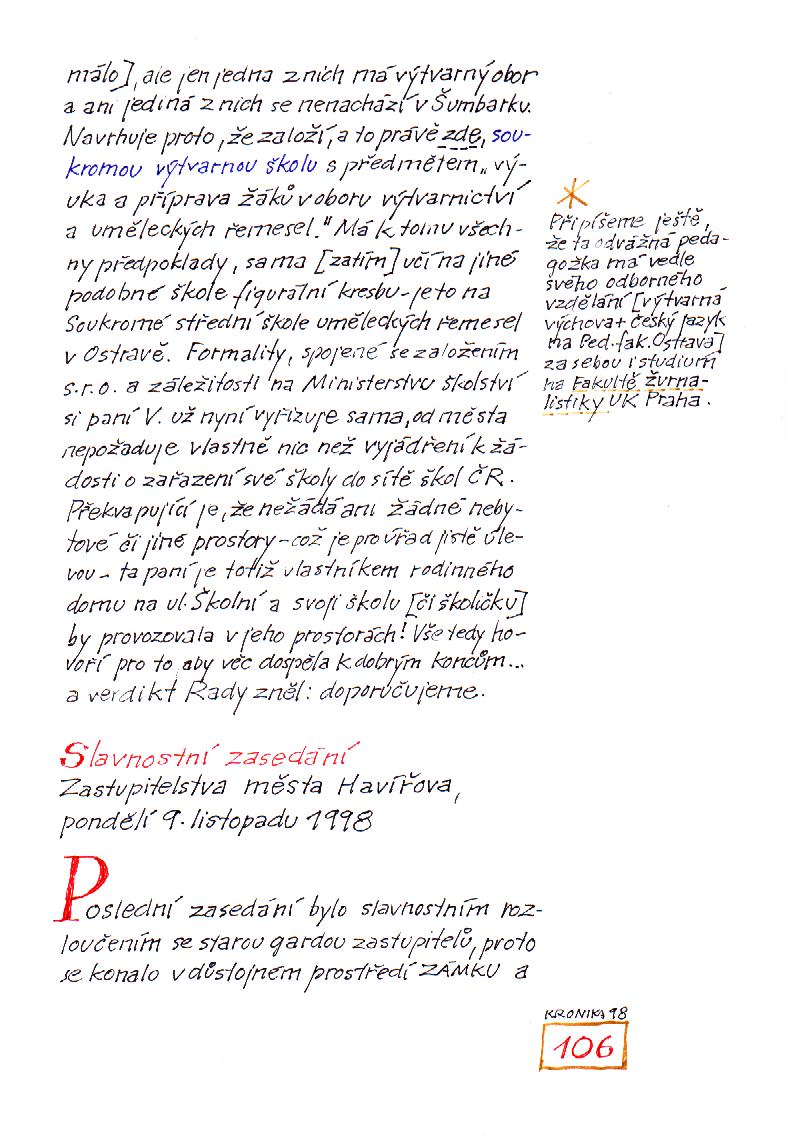 málo], ale jen jedna z nich má výtvarný obor
a ani jediná z nich se nenachází v Šumbarku.
Navrhuje proto, že založí, a to právě zde, sou-
kromou výtvarnou školu s předmětem „vý-
uka a příprava žáků v oboru výtvarnictví
a uměleckých řemesel." Má k tomu všech-
ny předpoklady, sama [zatím] učí na jiné
podobné škole figurální kresbu - je to na
Soukromé střední škole uměleckých řemesel
v Ostravě. Formality, spojené se založením
s.r.o. a záležitosti na Ministerstvu školství
si paní V. už nyní vyřizuje sama, od města
nepožaduje vlastně nic než vyjádření k žá-
dosti o zařazení své školy do sítě škol ČR.
Překvapující je, že nežádá ani žádné neby-
tové či jiné prostory - což je pro úřad jistě úle-
vou - ta paní je totiž vlastníkem rodinného
domu na ul. Školní a svoji školu [či školičku]
by provozovala v jeho prostorách! Vše tedy ho-
voří pro to, aby věc dospěla k dobrým koncům...
a verdikt Rady zněl: doporučujeme.
*
Připíšeme ještě,
že ta odvážná peda-
gožka má vedle
svého odborného
vzdělání [výtvarná
výchova + český jazyk
na Ped. fak. Ostrava]
za sebou i studium
na Fakultě žurna-
listiky UK Praha.
Slavnostní zasedání
Zastupitelstva města Havířova,
pondělí 9. listopadu 1998
Poslední zasedání bylo slavnostním roz-
loučením se starou gardou zastupitelů, proto
se konalo v důstojném prostředí ZÁMKU a
KRONIKA 98
106